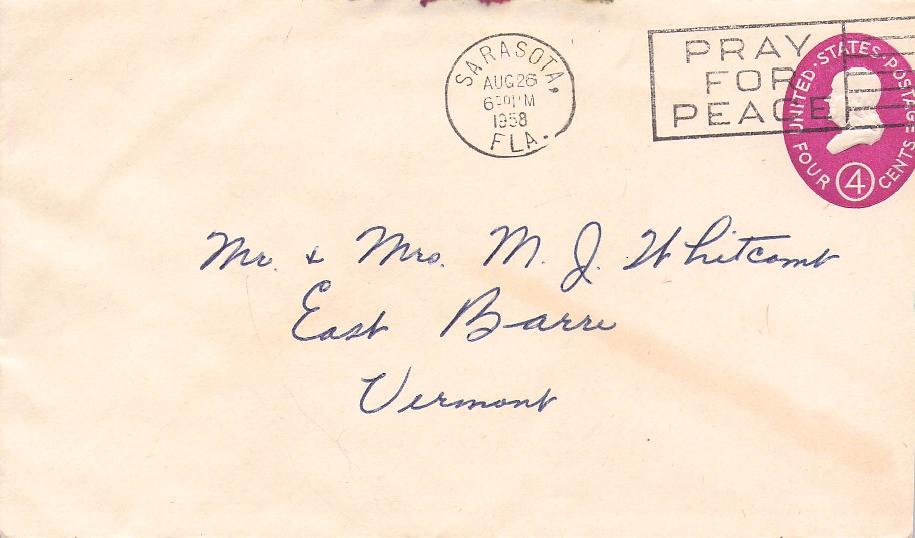 SARASOTA,
AUG 26
6:30 PM
1958
FLA.
PRAY
FOR
PEACE
UNITED · STATES · POSTAGE
FOUR 4 CENTS
Mr. & Mrs. M. J. Whitcomb
East Barre
Vermont